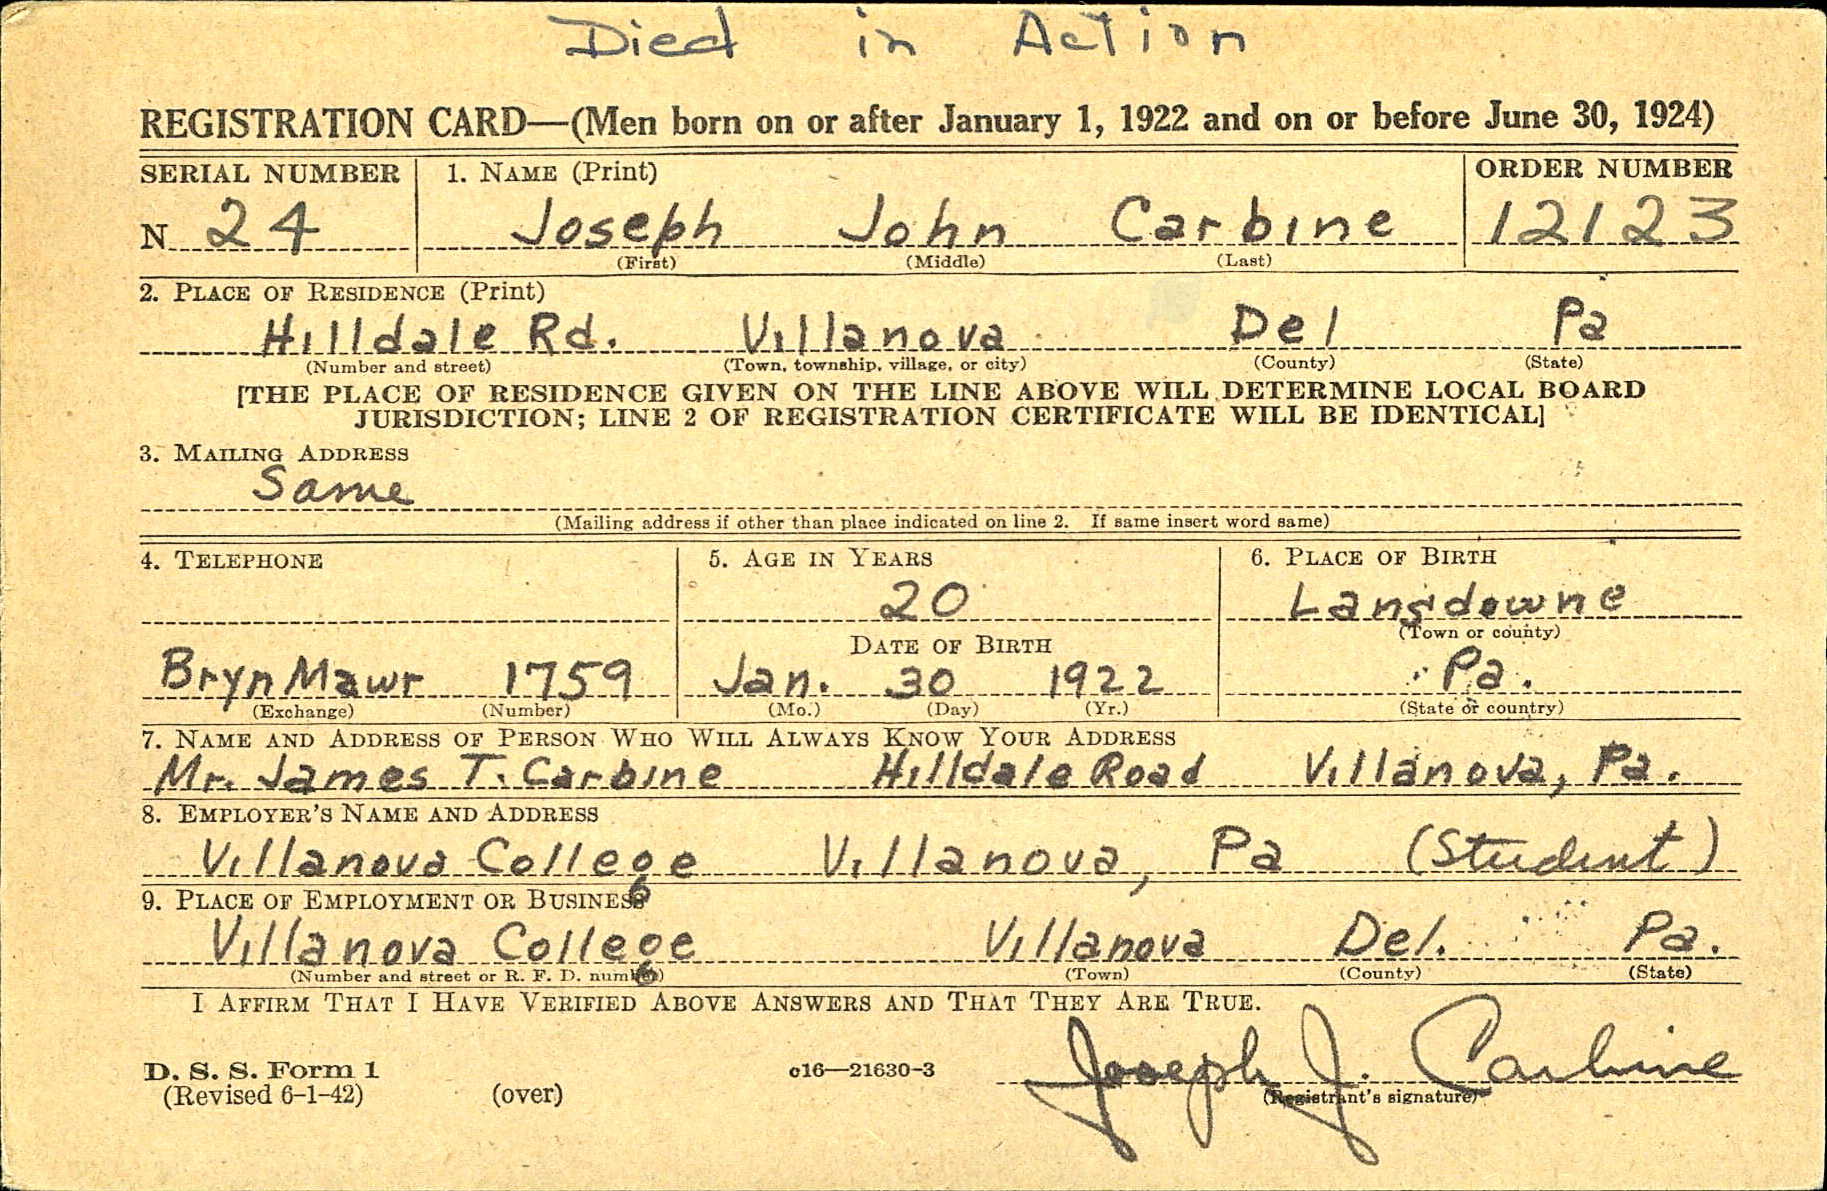 Died in Action
REGISTRATION CARD—(Men born on or after January 1, 1922 and on or before June 30, 1924)
SERIAL NUMBER 1. NAME (Print) ORDER NUMBER
N 24 Joseph John Carbine 12123
(First) (Middle) (Last)
2. PLACE OF RESIDENCE (Print)
Hilldale Rd. Villanova Del Pa
(Number and street) (Town, township, village, or city) (County) (State)
[THE PLACE OF RESIDENCE GIVEN ON THE LINE ABOVE WILL DETERMINE LOCAL BOARD
JURISDICTION; LINE 2 OF REGISTRATION CERTIFICATE WILL BE IDENTICAL]
3. MAILING ADDRESS
Same
(Mailing address if other than place indicated on line 2. If same insert word same)
4. TELEPHONE 5. AGE IN YEARS 6. PLACE OF BIRTH
20 Lansdowne
DATE OF BIRTH (Town or county)
Bryn Mawr 1759 Jan. 30 1922 Pa.
(Exchange) (Number) (Mo.) (Day) (Yr.) (State or country)
7. NAME AND ADDRESS OF PERSON WHO WILL ALWAYS KNOW YOUR ADDRESS
Mr. James T. Carbine Hilldale Road Villanova, Pa.
8. EMPLOYER'S NAME AND ADDRESS
Villanova College Villanova, Pa (Student)
9. PLACE OF EMPLOYMENT OR BUSINESS
Villanova College Villanova Del. Pa.
(Number and street or R. F. D. number) (Town) (County) (State)
I AFFIRM THAT I HAVE VERIFIED ABOVE ANSWERS AND THAT THEY ARE TRUE.
Joseph J. Carbine
D. S. S. Form 1 c16—21630-3
(Revised 6-1-42) (over) (Registrant's signature)